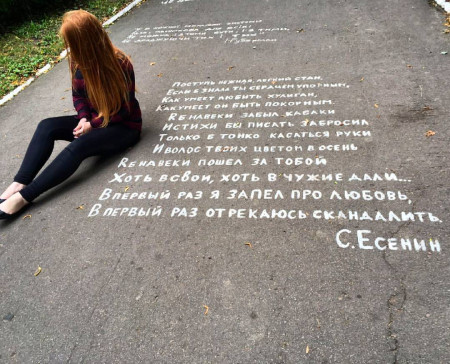 Поступь нежная, легкий стан,
Если б знала ты сердцем упорным,
Как умеет любить хулиган,
Как умеет он быть покорным.
Я б навеки забыл кабаки
И стихи бы писать забросил
Только б тонко касаться руки
И волос твоих цветом в осень
Я б навеки пошел за тобой
Хоть в свои, хоть в чужие дали...
В первый раз я запел про любовь,
В первый раз отрекаюсь скандалить.
С. Есенин